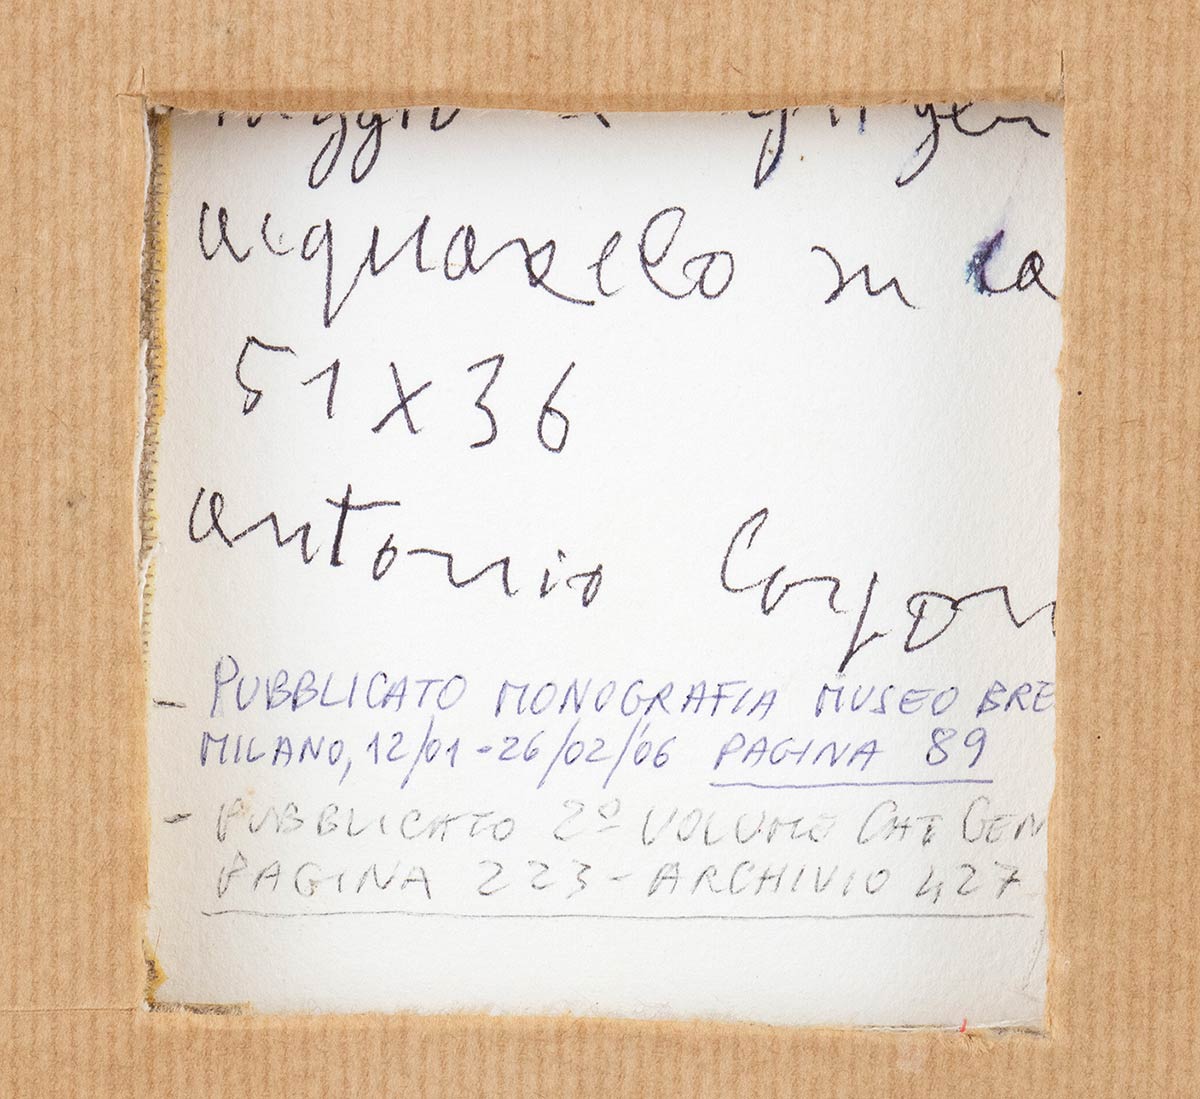 acquarello su ca
51 x 36
antonio Corpor
- PUBBLICATO MONOGRAFIA MUSEO BRE
MILANO, 12/01-26/02/06 PAGINA 89
- PUBBLICATO 2º VOLUME CAT GEN
PAGINA 223 - ARCHIVIO 427